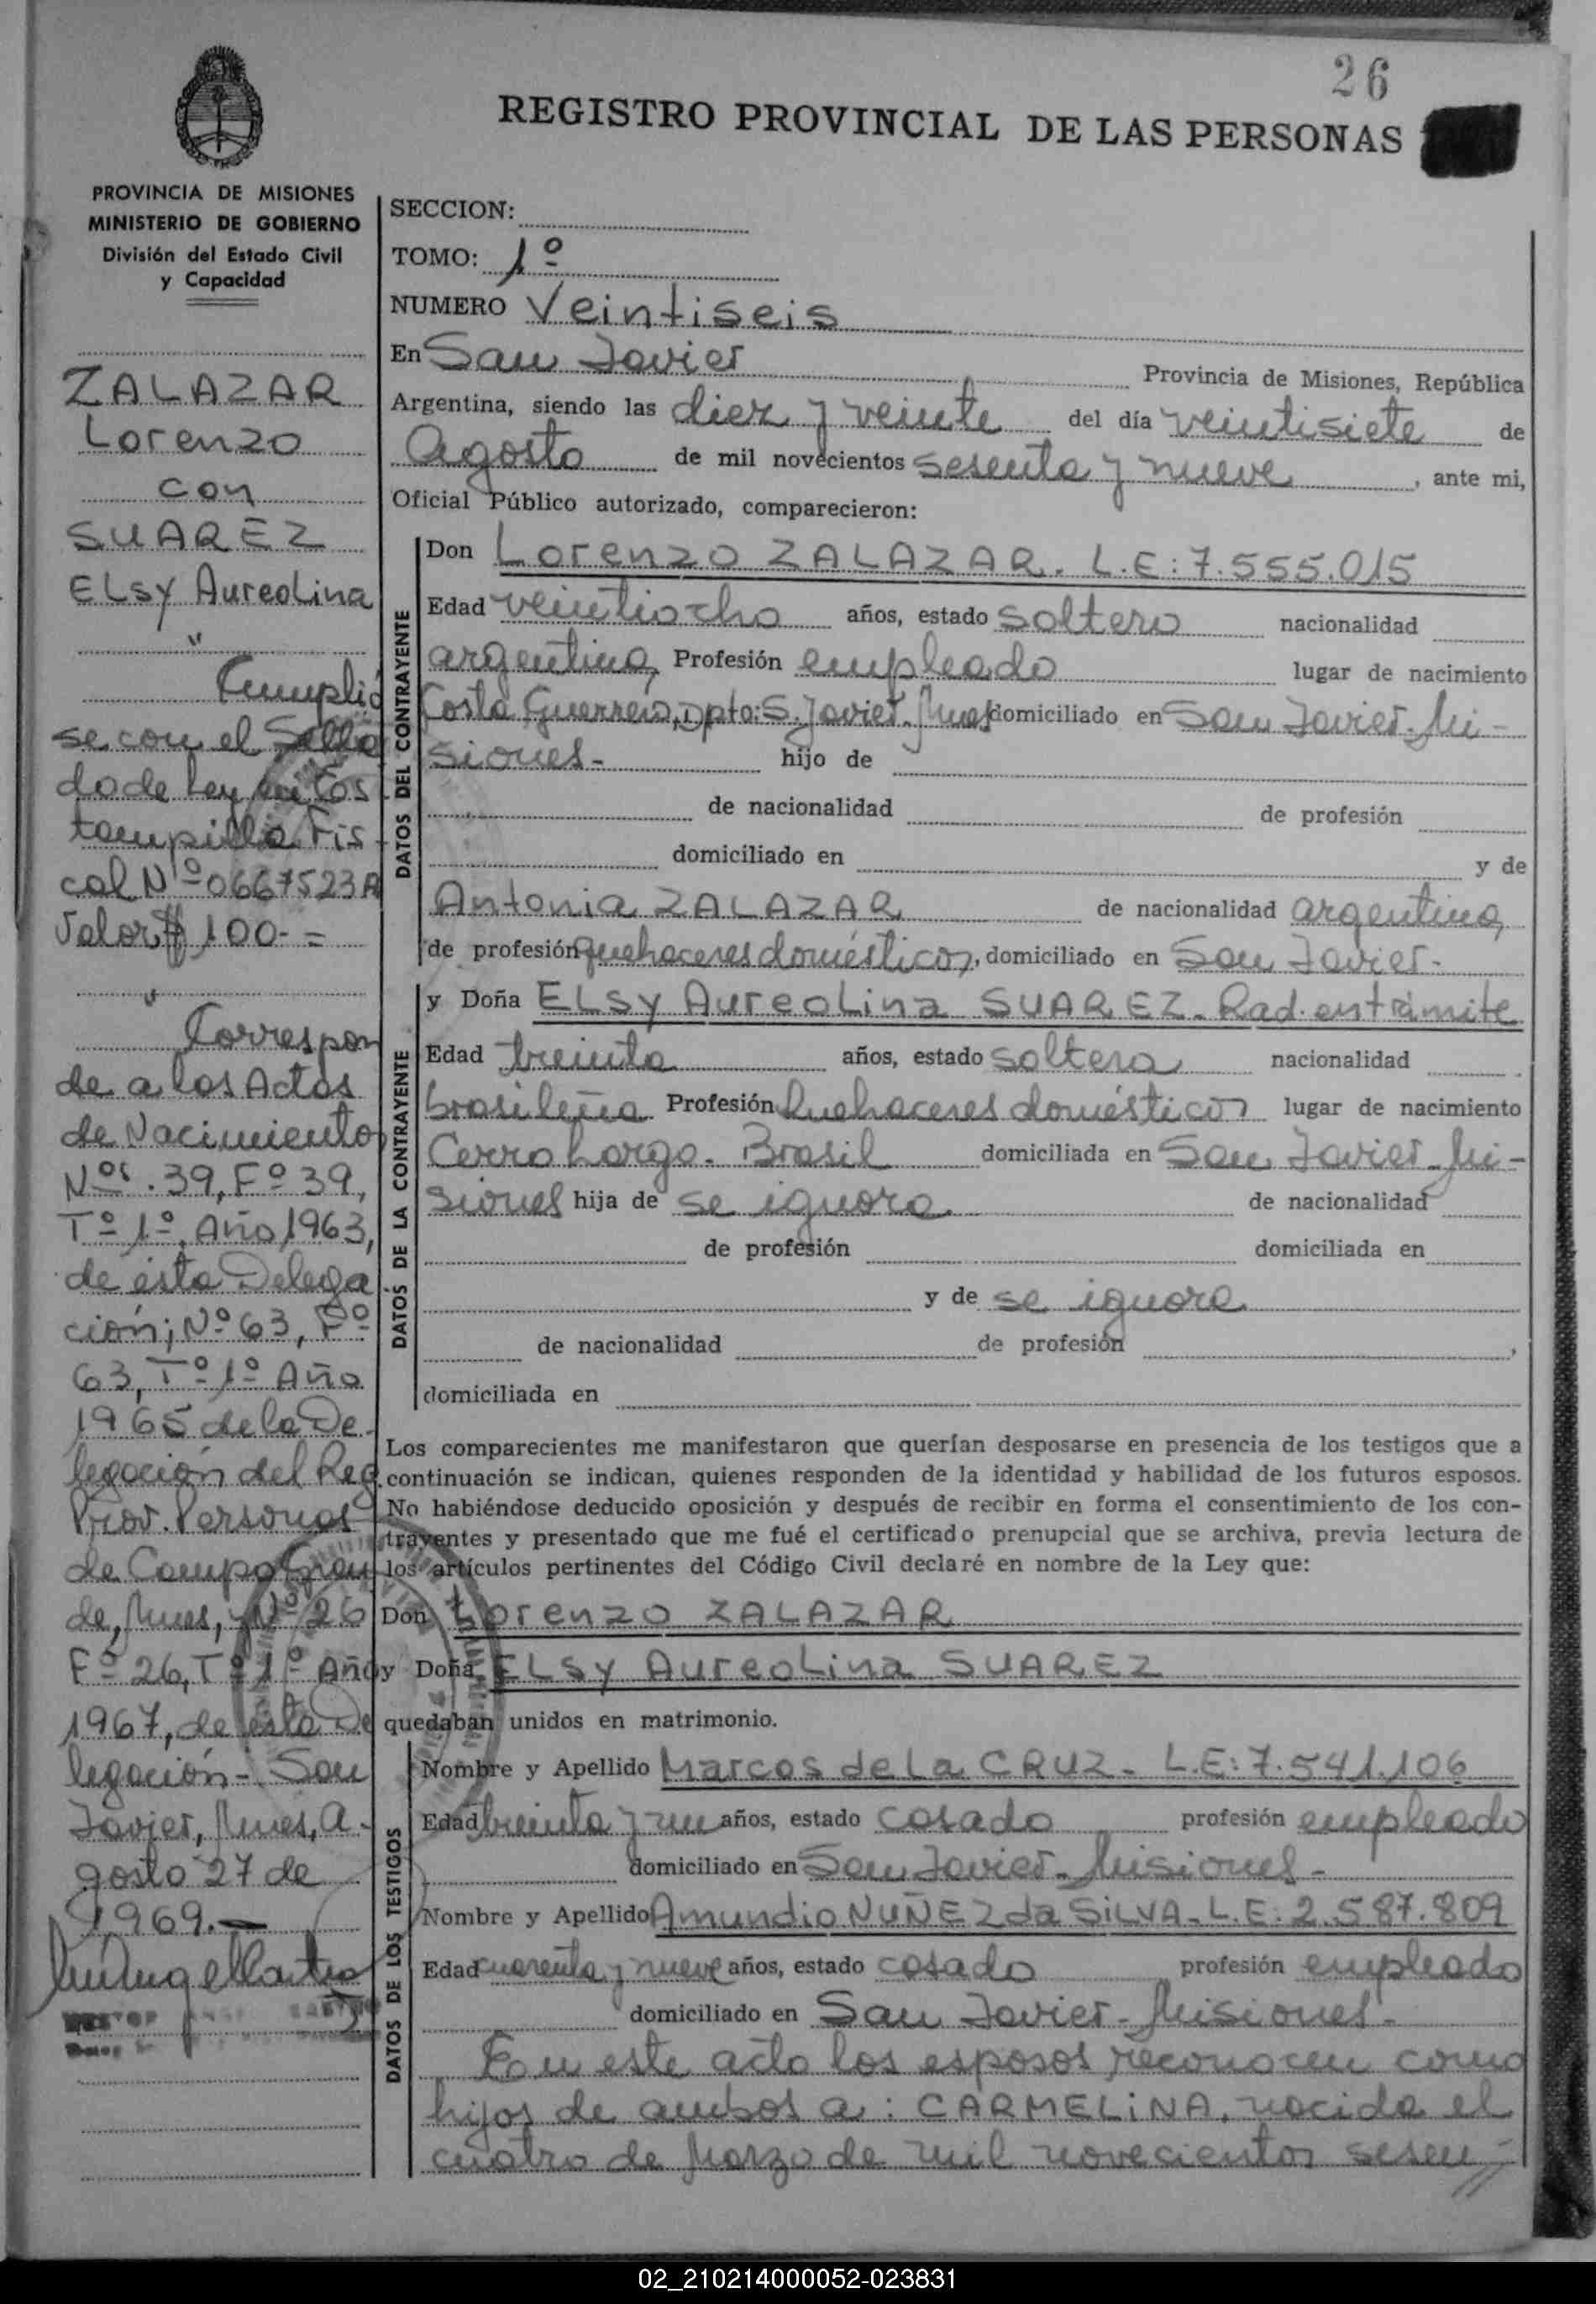 26
REGISTRO PROVINCIAL DE LAS PERSONAS
PROVINCIA DE MISIONES
MINISTERIO DE GOBIERNO
División del Estado Civil
y Capacidad
ZALAZAR
Lorenzo
con
SUAREZ
ELSY Aureolina
"
Cumplió
se con el Sella
do de Ley en Es
tampilla Fis
cal Nº 0667523A
Valor $ 100.- =
"
Correspon
de a las Actas
de Nacimiento
Nos. 39, Fº 39,
Tº 1º, Año 1963,
de ésta Delega
ción; Nº 63, Fº
63, Tº 1º Año
1965 de la De
legación del Reg.
Prov. Personas
de Campo Gran
de, Mnes, y Nº 26
Fº 26, Tº 1º Año
1967, de ésta De
legación.- San
Javier, Mnes, A-
gosto 27 de
1969.-
SECCION:
TOMO: 1º
NUMERO Veintiseis
En San Javier Provincia de Misiones, República
Argentina, siendo las diez y veinte del día veintisiete de
Agosto de mil novecientos sesenta y nueve, ante mi,
Oficial Público autorizado, comparecieron:
DATOS DEL CONTRAYENTE
Don Lorenzo ZALAZAR. L.E: 7.555.015
Edad veintiocho años, estado soltero nacionalidad
argentina, Profesión empleado lugar de nacimiento
Costa Guerrero, Dpto: S. Javier. Mnes domiciliado en San Javier. Mi-
siones.- hijo de
de nacionalidad de profesión
domiciliado en y de
Antonia ZALAZAR de nacionalidad argentina,
de profesión quehaceres domésticos, domiciliado en San Javier.
DATOS DE LA CONTRAYENTE
y Doña ELSY Aureolina SUAREZ. Rad. en trámite
Edad treinta años, estado soltera nacionalidad
brasileña Profesión Quehaceres domésticos lugar de nacimiento
Cerro Largo. Brasil domiciliada en San Javier. Mi-
siones hija de se ignora de nacionalidad
de profesión domiciliada en
y de se ignora
de nacionalidad de profesión ,
domiciliada en
Los comparecientes me manifestaron que querían desposarse en presencia de los testigos que a
continuación se indican, quienes responden de la identidad y habilidad de los futuros esposos.
No habiéndose deducido oposición y después de recibir en forma el consentimiento de los con-
trayentes y presentado que me fué el certificado prenupcial que se archiva, previa lectura de
los artículos pertinentes del Código Civil declaré en nombre de la Ley que:
Don Lorenzo ZALAZAR
y Doña ELSY Aureolina SUAREZ
quedaban unidos en matrimonio.
DATOS DE LOS TESTIGOS
Nombre y Apellido Marcos de la CRUZ. L.E: 7.541.106
Edad treinta y un años, estado casado profesión empleado
domiciliado en San Javier. Misiones.-
Nombre y Apellido Amundio NUÑEZ da SILVA. L.E: 2.587.809
Edad cuarenta y nueve años, estado casado profesión empleado
domiciliado en San Javier. Misiones.-
En este acto los esposos reconocen como
hijos de ambos a: CARMELINA, nacida el
cuatro de Marzo de mil novecientos sesen-
02_210214000052-023831